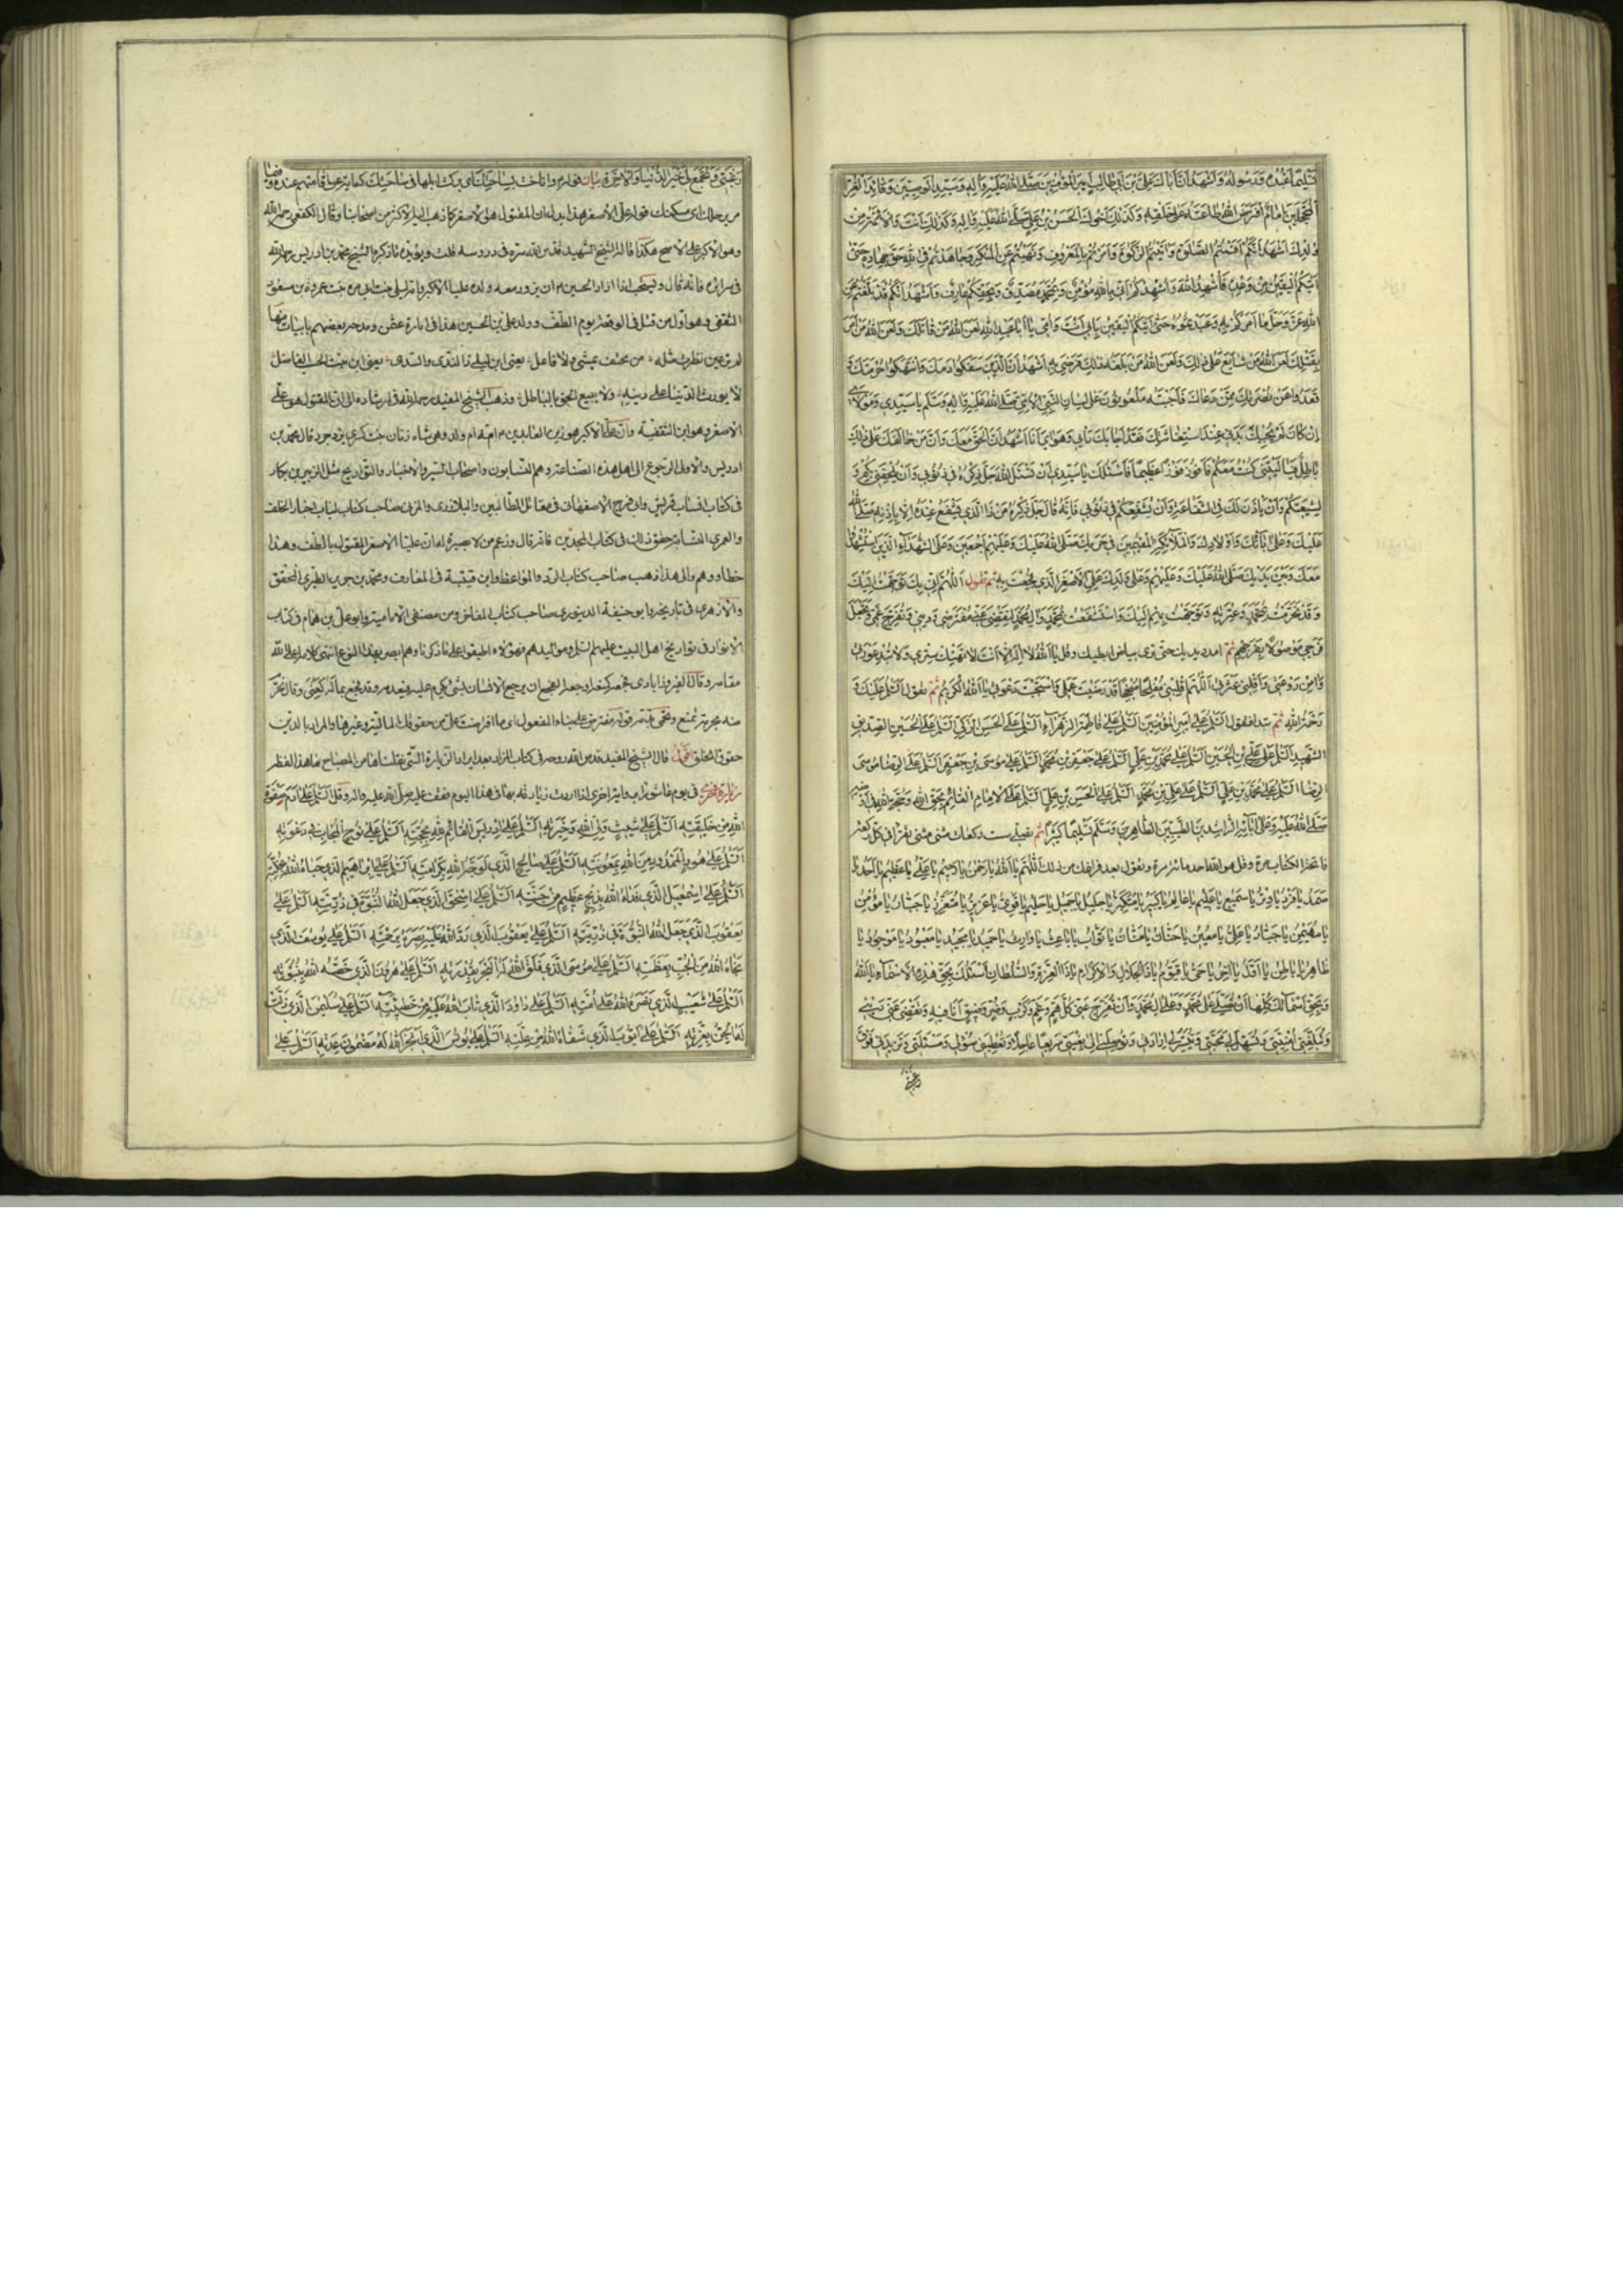 تَسْلِيمًا عَبْدُهُ وَرَسُولُهُ وَأَشْهَدُ أَنَّ أَبَاكَ عَلِيَّ بْنَ أَبِي طَالِبٍ أَمِيرُ الْمُؤْمِنِينَ صَلَّى اللهُ عَلَيْهِ وَآلِهِ وَسَيِّدُ الْوَصِيِّينَ وَقَائِدُ الْغُرِّ
الْمُحَجَّلِينَ إِمَامٌ افْتَرَضَ اللهُ طَاعَتَهُ عَلَى خَلْقِهِ وَكَذَلِكَ أَخُوكَ الْحَسَنُ بْنُ عَلِيٍّ صَلَّى اللهُ عَلَيْهِ وَآلِهِ وَكَذَلِكَ أَنْتَ وَالْأَئِمَّةُ مِنْ
وُلْدِكَ أَشْهَدُ أَنَّكُمْ أَقَمْتُمُ الصَّلٰوةَ وَآتَيْتُمُ الزَّكٰوةَ وَأَمَرْتُمْ بِالْمَعْرُوفِ وَنَهَيْتُمْ عَنِ الْمُنْكَرِ وَجَاهَدْتُمْ فِي اللهِ حَقَّ جِهَادِهِ حَتَّى
أَتَيكُمُ الْيَقِينُ مِنْ وَعْدِهِ فَأُشْهِدُ اللهَ وَأُشْهِدُكُمْ أَنِّي بِاللهِ مُؤْمِنٌ وَبِمُحَمَّدٍ مُصَدِّقٌ وَبِحَقِّكُمْ عَارِفٌ وَأَشْهَدُ أَنَّكُمْ قَدْ بَلَّغْتُمْ عَنِ
اللهِ عَزَّ وَجَلَّ مَا أَمَرَكُمْ بِهِ وَعَبَدْتُمُوهُ حَتَّى أَتَيكُمُ الْيَقِينُ بِأَبِي أَنْتَ وَأُمِّي يَا أَبَا عَبْدِ اللهِ لَعَنَ اللهُ مَنْ قَتَلَكَ وَلَعَنَ اللهُ مَنْ أَمَرَ
بِقَتْلِكَ لَعَنَ اللهُ مَنْ شَايَعَ عَلَى ذَلِكَ وَلَعَنَ اللهُ مَنْ بَلَغَهُ ذَلِكَ فَرَضِيَ بِهِ أَشْهَدُ أَنَّ الَّذِينَ سَفَكُوا دَمَكَ وَانْتَهَكُوا حُرْمَتَكَ وَ
قَعَدُوا عَنْ نُصْرَتِكَ مِمَّنْ دَعَاكَ فَأَجَبْتَهُ مَلْعُونُونَ عَلَى لِسَانِ النَّبِيِّ الْأُمِّيِّ صَلَّى اللهُ عَلَيْهِ وَآلِهِ وَسَلَّمَ يَا سَيِّدِي وَمَوْلَايَ
إِنْ كَانَ لَمْ يُجِبْكَ بَدَنِي عِنْدَ اسْتِغَاثَتِكَ فَقَدْ أَجَابَكَ رَأْيِي وَهَوَايَ أَنَا أَشْهَدُ أَنَّ الْحَقَّ مَعَكَ وَأَنَّ مَنْ خَالَفَكَ عَلَى ذَلِكَ
بَاطِلٌ فَيَا لَيْتَنِي كُنْتُ مَعَكُمْ فَأَفُوزَ فَوْزًا عَظِيمًا فَأَسْئَلُكَ يَا سَيِّدِي أَنْ تَسْئَلَ اللهَ جَلَّ ذِكْرُهُ فِي ذُنُوبِي وَأَنْ يُلْحِقَنِي بِكُمْ وَ
لِشِيعَتِكُمْ وَأَنْ يَأْذَنَ لَكَ فِي الشَّفَاعَةِ وَأَنْ يُشَفِّعَكُمْ فِي ذُنُوبِي فَإِنَّهُ قَالَ جَلَّ ذِكْرُهُ مَنْ ذَا الَّذِي يَشْفَعُ عِنْدَهُ إِلَّا بِإِذْنِهِ صَلَّى اللهُ
عَلَيْكَ وَعَلَى آبَائِكَ وَأَوْلَادِكَ وَالْمَلَائِكَةِ الْمُقِيمِينَ فِي حَرَمِكَ صَلَّى اللهُ عَلَيْكَ وَعَلَيْهِمْ أَجْمَعِينَ وَعَلَى الشُّهَدَاءِ الَّذِينَ اسْتُشْهِدُوا
مَعَكَ وَبَيْنَ يَدَيْكَ صَلَّى اللهُ عَلَيْكَ وَعَلَيْهِمْ وَعَلَى وَلَدِكَ عَلِيٍّ الْأَصْغَرِ الَّذِي فُجِعْتَ بِهِ ثم تقول اللّٰهُمَّ إِنِّي بِكَ تَوَجَّهْتُ إِلَيْكَ
وَقَدْ تَحَرَّمْتُ بِمُحَمَّدٍ وَعِتْرَتِهِ وَتَوَجَّهْتُ بِهِمْ إِلَيْكَ وَاسْتَشْفَعْتُ بِمُحَمَّدٍ وَآلِ مُحَمَّدٍ لِتَقْضِيَ عَنِّي مُفْتَرَضِي وَدَيْنِي وَتُفَرِّجَ غَمِّي وَتَجْعَلَ
فَرَجِي مَوْصُولًا بِفَرَجِهِمْ ثم امدد يديك حتى ترى بياض ابطيك وقل يَا اَللهُ لَا إِلَهَ إِلَّا أَنْتَ لَا تَهْتِكْ سِتْرِي وَلَا تُبْدِ عَوْرَتِي
وَآمِنْ رَوْعَتِي وَأَقِلْنِي عَثْرَتِي اللّٰهُمَّ اقْلِبْنِي مُفْلِحًا مُنْجِحًا قَدْ رَضِيتَ عَمَلِي وَاسْتَجَبْتَ دَعْوَتِي يَا اَللهُ الْكَرِيمُ ثم تقول السَّلٰمُ عَلَيْكَ وَ
رَحْمَةُ اللهِ ثم تبدا فتقول السَّلٰمُ عَلَى أَمِيرِ الْمُؤْمِنِينَ السَّلٰمُ عَلَى فَاطِمَةَ الزَّهْرَاءِ السَّلٰمُ عَلَى الْحَسَنِ الزَّكِيِّ السَّلٰمُ عَلَى الْحُسَيْنِ الصِّدِّيقِ
الشَّهِيدِ السَّلٰمُ عَلَى عَلِيِّ بْنِ الْحُسَيْنِ السَّلٰمُ عَلَى مُحَمَّدِ بْنِ عَلِيٍّ السَّلٰمُ عَلَى جَعْفَرِ بْنِ مُحَمَّدٍ السَّلٰمُ عَلَى مُوسَى بْنِ جَعْفَرٍ السَّلٰمُ عَلَى الرِّضَا مُوسَى
الرِّضَا السَّلٰمُ عَلَى مُحَمَّدِ بْنِ عَلِيٍّ السَّلٰمُ عَلَى عَلِيِّ بْنِ مُحَمَّدٍ السَّلٰمُ عَلَى الْحَسَنِ بْنِ عَلِيٍّ السَّلٰمُ عَلَى الْإِمَامِ الْقَائِمِ بِحَقِّ اللهِ وَحُجَّةِ اللهِ فِي أَرْضِهِ
صَلَّى اللهُ عَلَيْهِ وَعَلَى آبَائِهِ الرَّاشِدِينَ الطَّيِّبِينَ الطَّاهِرِينَ وَسَلَّمَ تَسْلِيمًا كَثِيرًا ثم تصلى ست ركعات مثنى مثنى تقرا فى كل ركعة
فاتحة الكتاب مرة وقل هو الله احد مائة مرة وتقول بعد فراغك من ذلك اللّٰهُمَّ يَا اَللهُ يَا رَحْمٰنُ يَا رَحِيمُ يَا عَلِيُّ يَا عَظِيمُ يَا أَحَدُ يَا
صَمَدُ يَا فَرْدُ يَا وِتْرُ يَا سَمِيعُ يَا عَلِيمُ يَا عَالِمُ يَا كَبِيرُ يَا مُتَكَبِّرُ يَا جَلِيلُ يَا جَمِيلُ يَا حَلِيمُ يَا قَوِيُّ يَا عَزِيزُ يَا مُتَعَزِّزُ يَا جَبَّارُ يَا مُؤْمِنُ
يَا مُهَيْمِنُ يَا جَبَّارُ يَا عَلِيُّ يَا مُعِينُ يَا حَنَّانُ يَا مَنَّانُ يَا تَوَّابُ يَا بَاعِثُ يَا وَارِثُ يَا حَمِيدُ يَا مَجِيدُ يَا مَعْبُودُ يَا مَوْجُودُ يَا
ظَاهِرُ يَا بَاطِنُ يَا أَوَّلُ يَا آخِرُ يَا حَيُّ يَا قَيُّومُ يَا ذَا الْجَلَالِ وَالْإِكْرَامِ يَا ذَا الْعِزَّةِ وَالسُّلْطَانِ أَسْئَلُكَ بِحَقِّ هٰذِهِ الْأَسْمَاءِ يَا اَللهُ
وَبِحَقِّ أَسْمَائِكَ كُلِّهَا أَنْ تُصَلِّيَ عَلَى مُحَمَّدٍ وَعَلَى آلِ مُحَمَّدٍ وَأَنْ تُفَرِّجَ عَنِّي كُلَّ هَمٍّ وَغَمٍّ وَكَرْبٍ وَضُرٍّ وَضِيقٍ أَنَا فِيهِ وَتَقْضِيَ عَنِّي دَيْنِي
وَتُبَلِّغَنِي أُمْنِيَّتِي وَتُسَهِّلَ لِي مَحَبَّتِي وَتُيَسِّرَ لِي إِرَادَتِي وَتُوصِلَنِي إِلَى بُغْيَتِي سَرِيعًا عَاجِلًا وَتُعْطِيَنِي سُؤْلِي وَمَسْئَلَتِي وَتَزِيدَنِي فَوْقَ
رغبتى
رَغْبَتِي وَتَجْمَعَ لِي خَيْرَ الدُّنْيَا وَالْآخِرَةِ بيان قوله م واناخت بساحتك اى بركت ابلها فى ساحتك كناية عن اقامتهم عنده
من رحلك اى مسكنك قوله على الاصغر هذا يدل على ان المقتول هو الاصغر كما ذهب اليه الاكثر من اصحابنا وقال الكفعمى رحمه الله
وهو الاكبر على الاصح هكذا قاله الشيخ الشهيد قدس الله سره فى دروسه قلت ويؤيده ما ذكره الشيخ محمد بن ادريس رحمه الله
فى سرائره فانه قال ويستحب اذا زار الحسين م ان يزور معه ولده عليا الاكبر وامه ليلى بنت ابى مرة بنت عروة بن مسعود
الثقفى وهو اول من قتل فى الوقعة يوم الطف وولد على بن الحسين هذا فى امارة عثمن ومدحه بعضهم بابيات منها
لم تر عين نظرت مثله من محتف يمشى ولا فاعل يعنى ابن ليلى ذا الندى والسدى يعنى ابن بنت الحسب الفاضل
لا يؤثر الدنيا على دينه ولا يبيع الحق بالباطل وذهب الشيخ المفيد رحمه الله فى ارشاده الى ان المقتول هو على
الاصغر وهو ابن الثقفية وان عليا الاكبر هو زين العابدين م امه ام ولد وهى شاه زنان بنت كسرى يزدجرد قال محمد بن
ادريس والاولى الرجوع الى اهل هذه الصناعة وهم النسابون واصحاب السير والاخبار والتواريخ مثل الزبير بن بكار
فى كتاب انساب قريش وابى فرج الاصفهانى فى مقاتل الطالبيين والبلاذرى والمزنى صاحب كتاب لباب اخبار الخلفاء
والعمرى النسابة حقق ذلك فى كتاب المجدى فانه قال وزعم من لا بصيرة له ان عليا الاصغر المقتول بالطف وهذا
خطا ووهم والى هذا ذهب صاحب كتاب الزواجر والمواعظ وابن قتيبة فى المعارف ومحمد بن جرير الطبرى المحقق
والازهرى فى تاريخه وابو حنيفة الدينورى صاحب كتاب المفاخر ومن مصنفى الامامية وابو على بن همام فى كتاب
الانوار فى تواريخ اهل البيت عليهم السلم ومواليدهم فهؤلاء اطبقوا على ما ذكرنا وهم ابصر بهذا النوع انتهى كلامه اعلى الله
مقامه
منه قوله مفترضى على بناء المفعول اى ما افترضت على من حقوقك المالية وغيرها والمراد بالدين
حقوق الخلق قال الشيخ المفيد قدس الله روحه فى كتاب المزار بعد ايراد الزيارة التى نقلناها من المصباح ما هذا لفظه
زيارة اخرى فى يوم عاشورا برواية اخرى اذا اردت زيارته بها فى هذا اليوم فقف عليه صلى الله عليه واله وقل السَّلٰمُ عَلَى آدَمَ صَفْوَةِ
اللهِ مِنْ خَلِيقَتِهِ السَّلٰمُ عَلَى شَيْثٍ وَلِيِّ اللهِ وَخِيَرَتِهِ السَّلٰمُ عَلَى إِدْرِيسَ الْقَائِمِ لِلّٰهِ بِحُجَّتِهِ السَّلٰمُ عَلَى نُوحٍ الْمُجَابِ فِي دَعْوَتِهِ
السَّلٰمُ عَلَى هُودٍ الْمَمْدُودِ مِنَ اللهِ بِمَعُونَتِهِ السَّلٰمُ عَلَى صَالِحٍ الَّذِي تَوَّجَهُ اللهُ بِكَرَامَتِهِ السَّلٰمُ عَلَى إِبْرَاهِيمَ الَّذِي حَبَاهُ اللهُ بِخُلَّتِهِ
السَّلٰمُ عَلَى إِسْمٰعِيلَ الَّذِي فَدَاهُ اللهُ بِذِبْحٍ عَظِيمٍ مِنْ جَنَّتِهِ السَّلٰمُ عَلَى إِسْحٰقَ الَّذِي جَعَلَ اللهُ النُّبُوَّةَ فِي ذُرِّيَّتِهِ السَّلٰمُ عَلَى
يَعْقُوبَ الَّذِي جَعَلَ اللهُ النُّبُوَّةَ فِي ذُرِّيَّتِهِ السَّلٰمُ عَلَى يَعْقُوبَ الَّذِي رَدَّ اللهُ عَلَيْهِ بَصَرَهُ بِرَحْمَتِهِ السَّلٰمُ عَلَى يُوسُفَ الَّذِي
نَجَّاهُ اللهُ مِنَ الْجُبِّ بِعَظَمَتِهِ السَّلٰمُ عَلَى مُوسَى الَّذِي فَلَقَ اللهُ لَهُ الْبَحْرَ بِقُدْرَتِهِ السَّلٰمُ عَلَى هٰرُونَ الَّذِي خَصَّهُ اللهُ بِنُبُوَّتِهِ
السَّلٰمُ عَلَى شُعَيْبٍ الَّذِي نَصَرَهُ اللهُ عَلَى أُمَّتِهِ السَّلٰمُ عَلَى دَاوُدَ الَّذِي تَابَ اللهُ عَلَيْهِ مِنْ خَطِيئَتِهِ السَّلٰمُ عَلَى سُلَيْمٰنَ الَّذِي ذَلَّتْ
لَهُ الْجِنُّ بِعِزَّتِهِ السَّلٰمُ عَلَى أَيُّوبَ الَّذِي شَفَاهُ اللهُ مِنْ عِلَّتِهِ السَّلٰمُ عَلَى يُونُسَ الَّذِي أَنْجَزَ اللهُ لَهُ مَضْمُونَ عِدَتِهِ السَّلٰمُ عَلَى